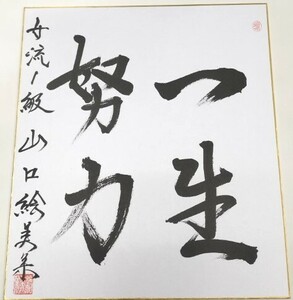 一生
努力
女流1級 山口絵美菜